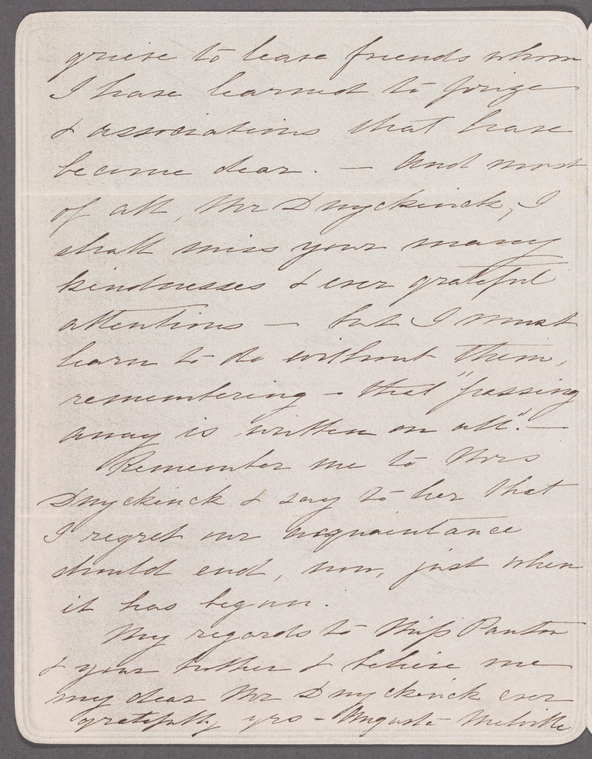 grieve to leave friends whom
I have learned to prize
& associations that have
become dear. — And most
of all, Mr Duyckinck, I
shall miss your many
kindnesses & ever grateful
attentions — but I must
learn to do without them,
remembering — that "passing
away is written on all." —
Remember me to Mrs
Duyckinck & say to her that
I regret our acquaintance
should end, now, just when
it has begun.
My regards to Miss Panton
& your brother & believe me
my dear Mr Duyckinck ever
gratefully yrs — Augusta Melville